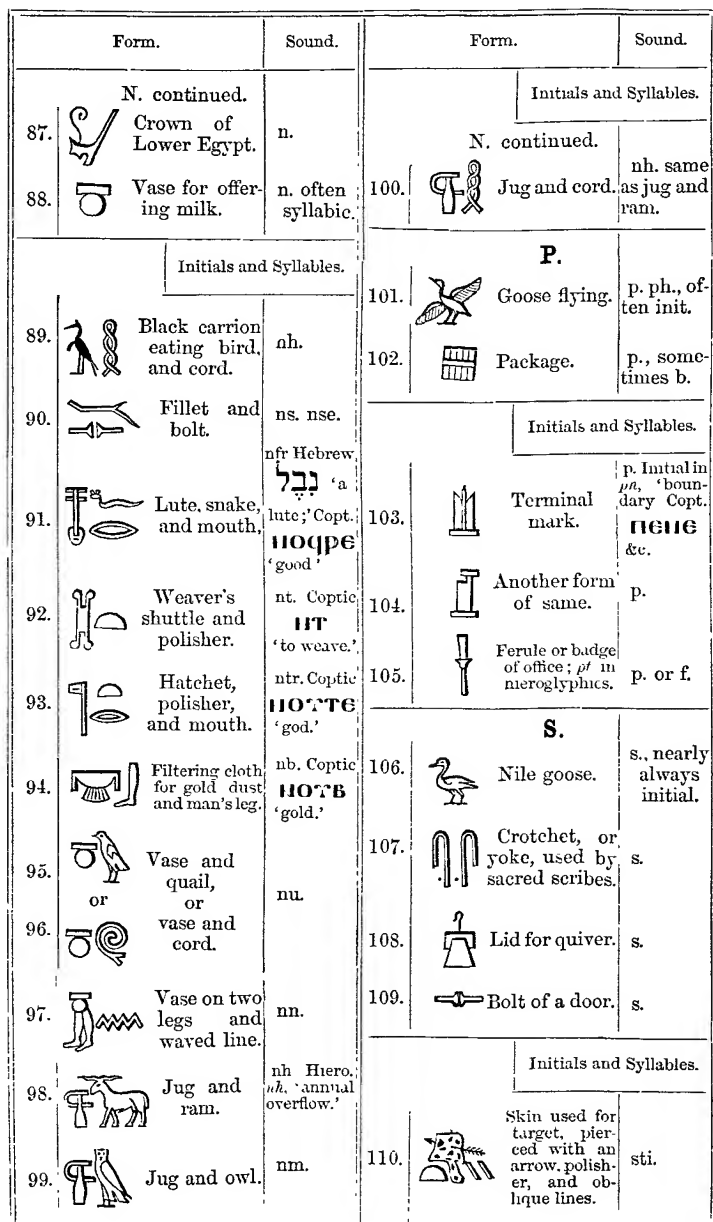 Form. Sound.
N. continued.
87. Crown of
Lower Egypt. n.
88. Vase for offer-
ing milk. n. often
syllabic.
Initials and Syllables.
89. Black carrion
eating bird,
and cord. nh.
90. Fillet and
bolt. ns. nse.
91. Lute, snake,
and mouth,
nfr Hebrew
נִבֶל 'a
lute;' Copt.
ⲛⲟϥⲣⲉ
'good'
92. Weaver's
shuttle and
polisher.
nt. Coptic
ⲛⲧ
'to weave.'
93. Hatchet,
polisher,
and mouth.
ntr. Coptic
ⲛⲟⲩⲧⲉ
'god.'
94. Filtering cloth
for gold dust
and man's leg.
nb. Coptic
ⲛⲟⲩⲃ
'gold.'
95. Vase and
quail,
or or
96. vase and
cord.
nu.
97. Vase on two
legs and
waved line. nn.
98. Jug and
ram.
nh Hiero.
nh, 'annual
overflow.'
99. Jug and owl. nm.
Form. Sound.
Initials and Syllables.
N. continued.
100. Jug and cord.
nh. same
as jug and
ram.
P.
101. Goose flying. p. ph., of-
ten init.
102. Package. p., some-
times b.
Initials and Syllables.
103. Terminal
mark.
p. Initial in
pn, 'boun-
dary Copt.
ⲡⲉⲛⲉ
&c.
104. Another form
of same. p.
105. Ferule or badge
of office; pt in
hieroglyphics. p. or f.
S.
106. Nile goose. s., nearly
always
initial.
107. Crotchet, or
yoke, used by
sacred scribes. s.
108. Lid for quiver. s.
109. Bolt of a door. s.
Initials and Syllables.
110. Skin used for
target, pier-
ced with an
arrow, polish-
er, and ob-
lique lines. sti.